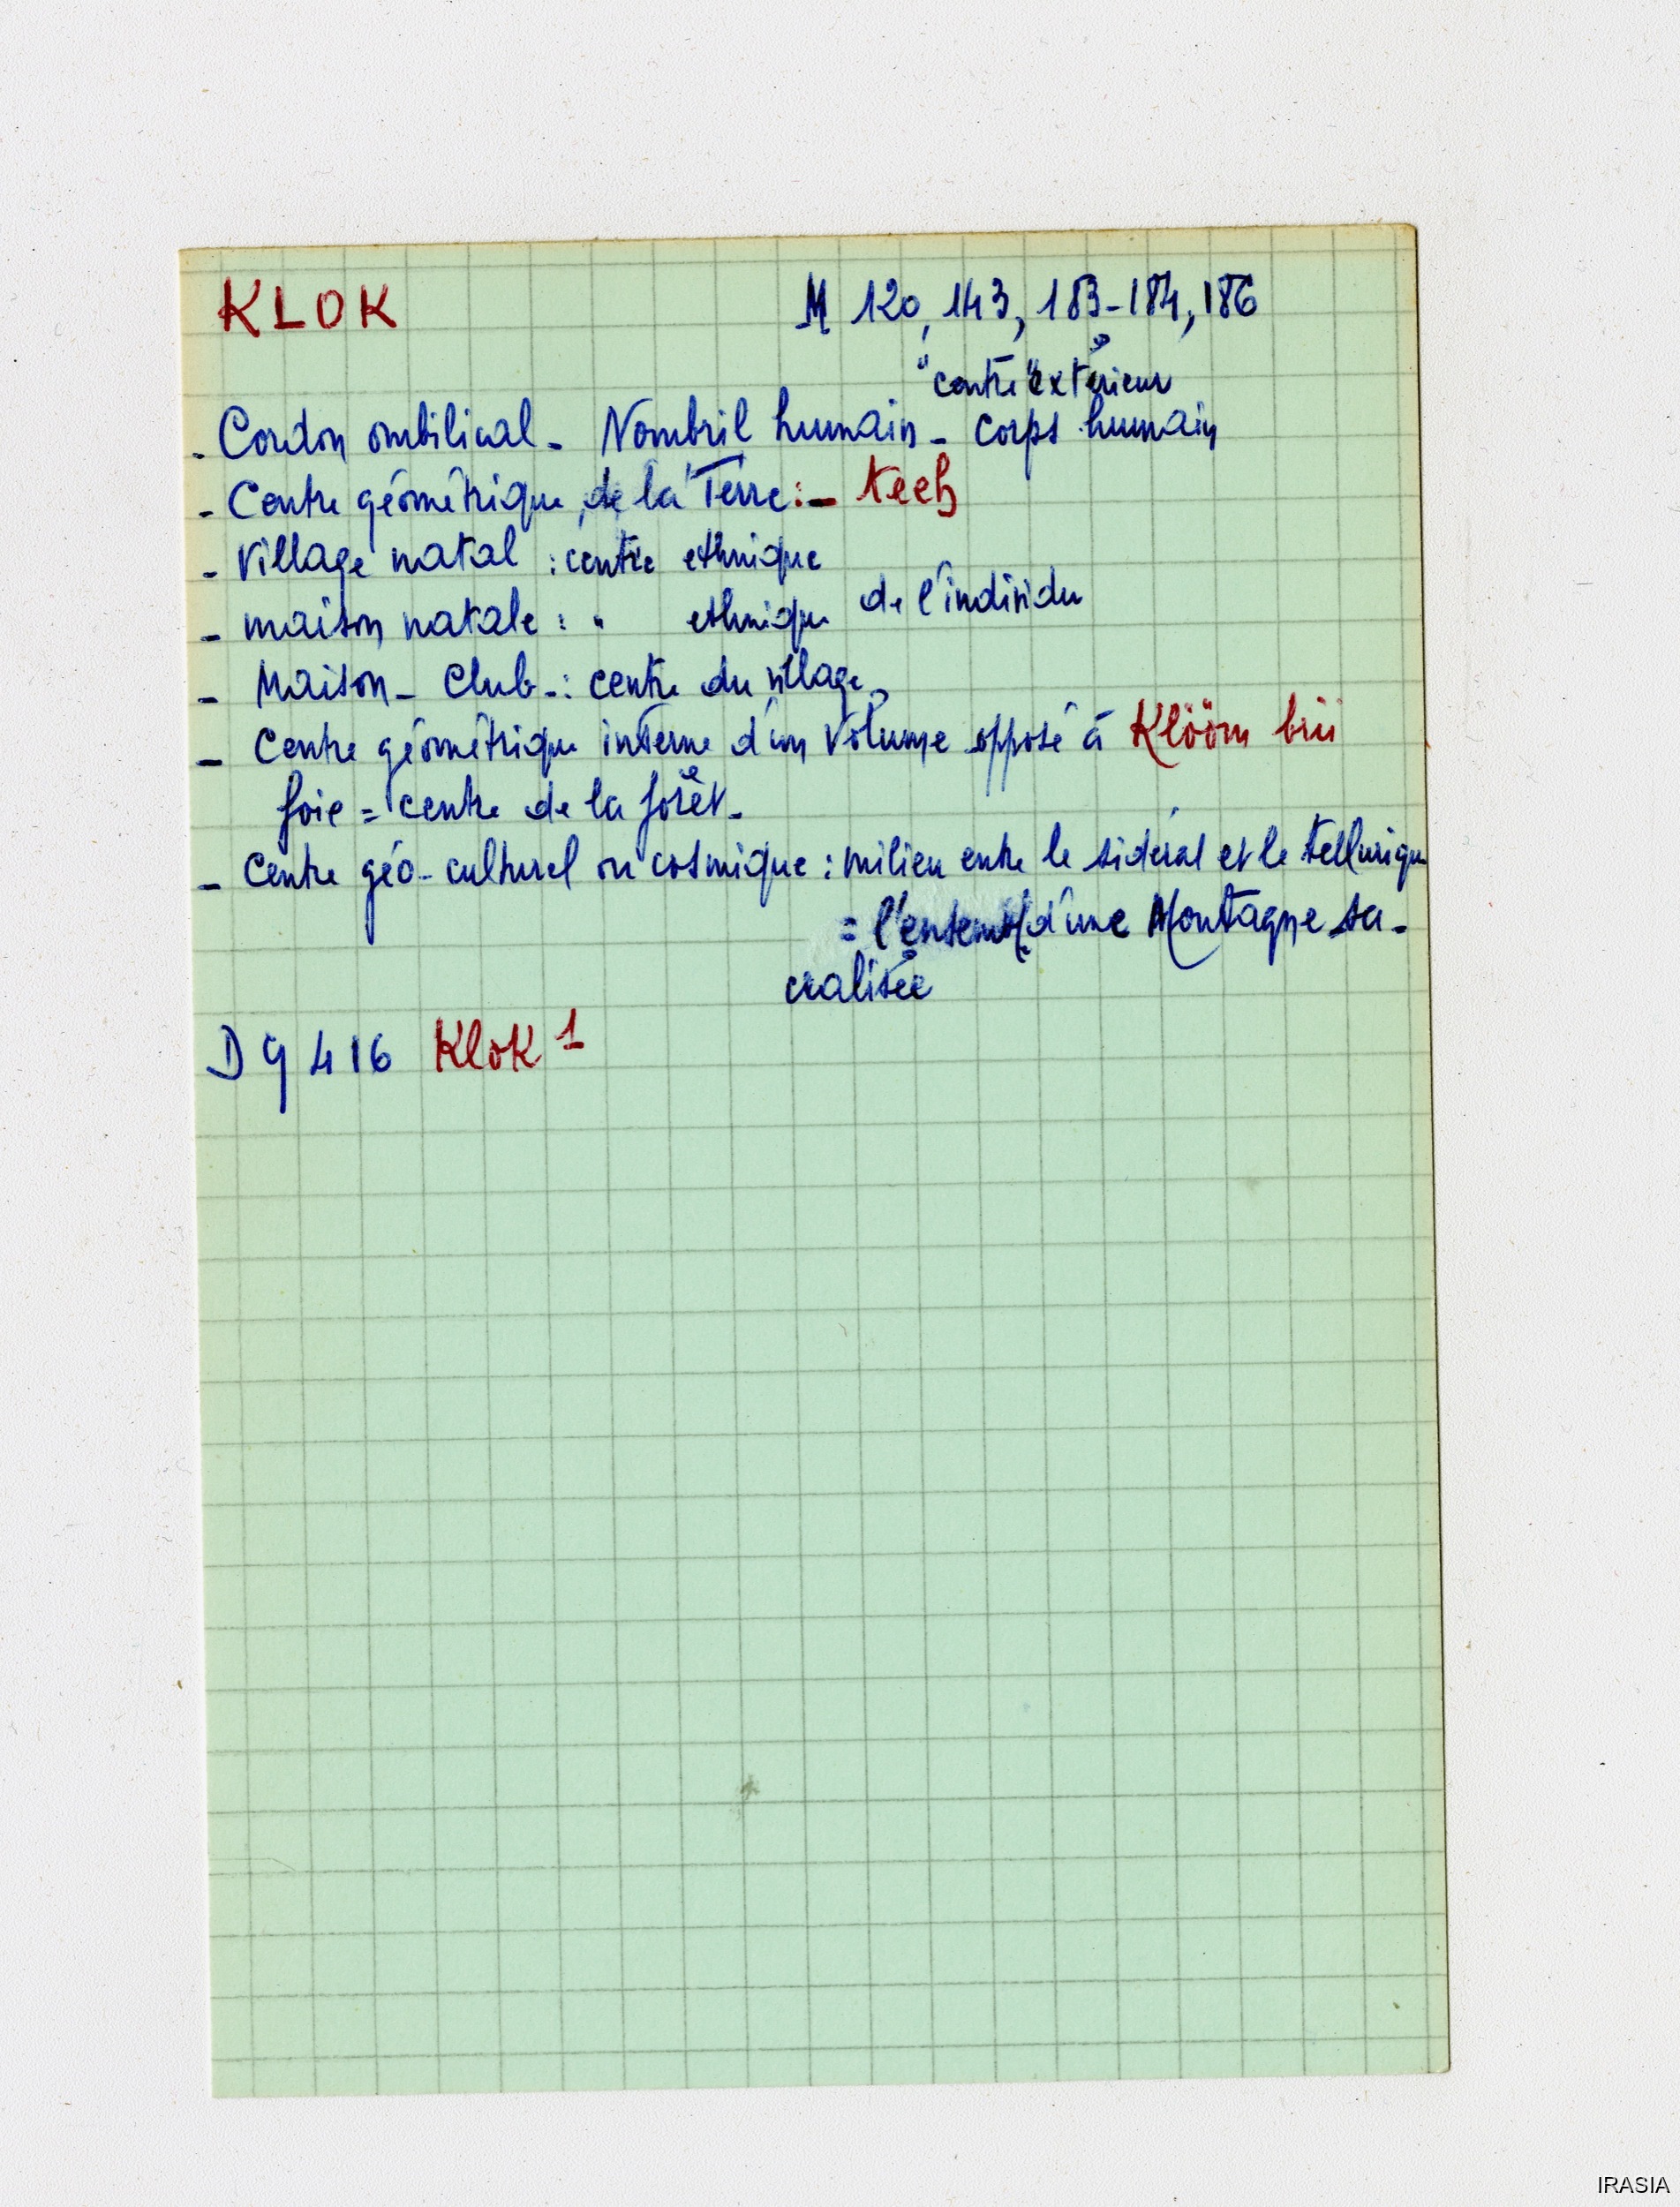 KLOK M 120, 143, 183-184, 186
"centre" extérieur
- Cordon ombilical - Nombril humain - corps humain
- Centre géométrique de la Terre : - teeh
- Village natal : centre ethnique
- maison natale : " ethnique de l'individu
- Maison - Club - : centre du village
- Centre géométrique interne d'un volume opposé à Klööm brii
foie = centre de la forêt -
- Centre géo-culturel ou cosmique : milieu entre le sidéral et le tellurique
= l'ensemble d'une Montagne sa-
cralisée
D 9 416 Klok 1
IRASIA